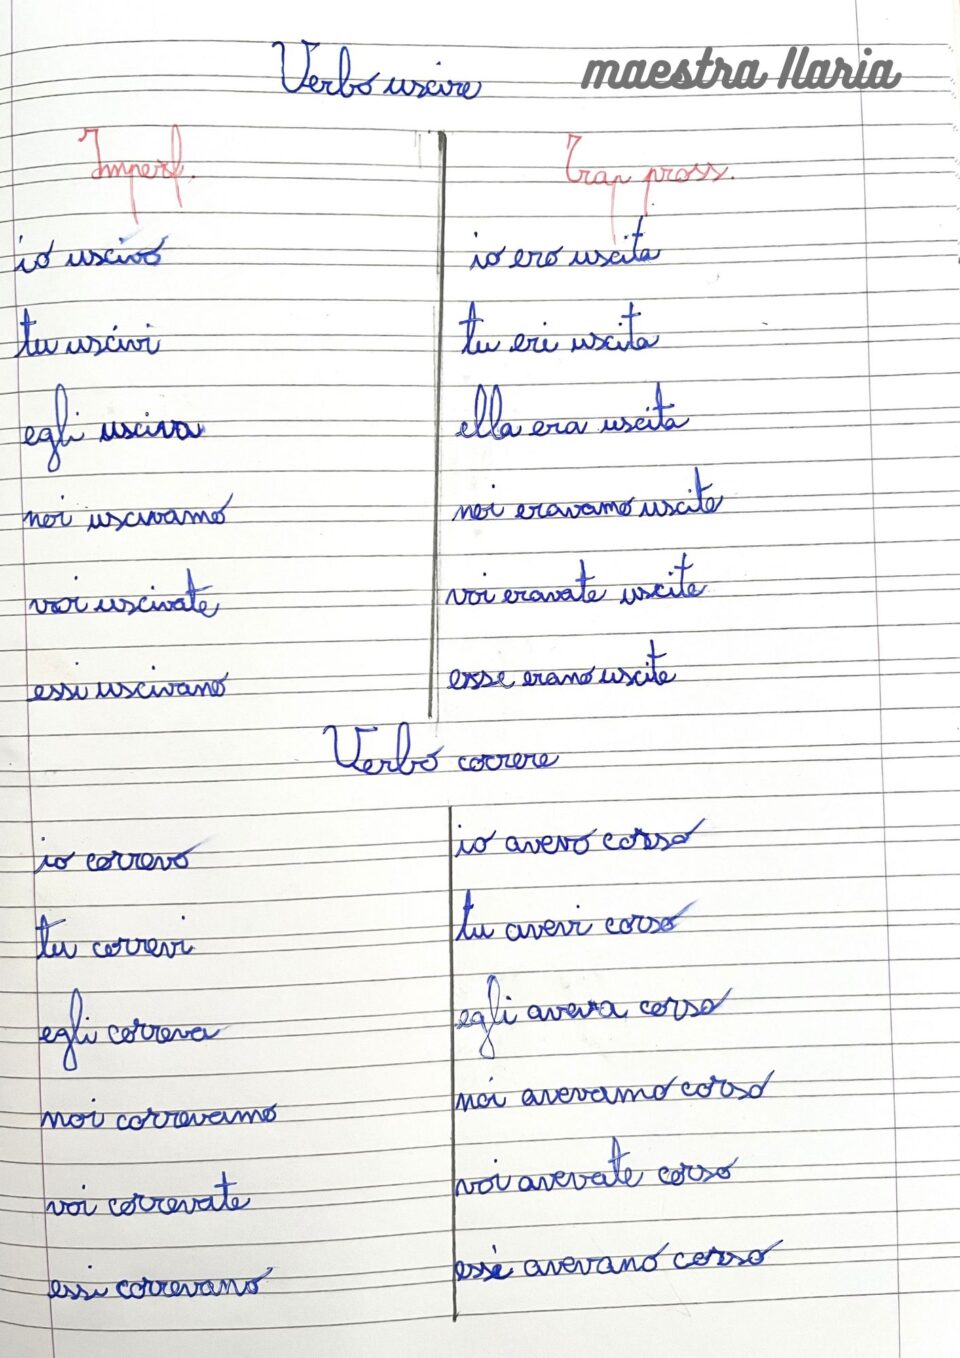 Verbo uscire maestra Ilaria
Imperf. Trap pross.
io uscivo io ero uscita
tu uscivi tu eri uscita
egli usciva ella era uscita
noi uscivamo noi eravamo uscite
voi uscivate voi eravate uscite
essi uscivano esse erano uscite
Verbo correre
io correvo io avevo corso
tu correvi tu avevi corso
egli correva egli aveva corso
noi correvamo noi avevamo corso
voi correvate voi avevate corso
essi correvano essi avevano corso